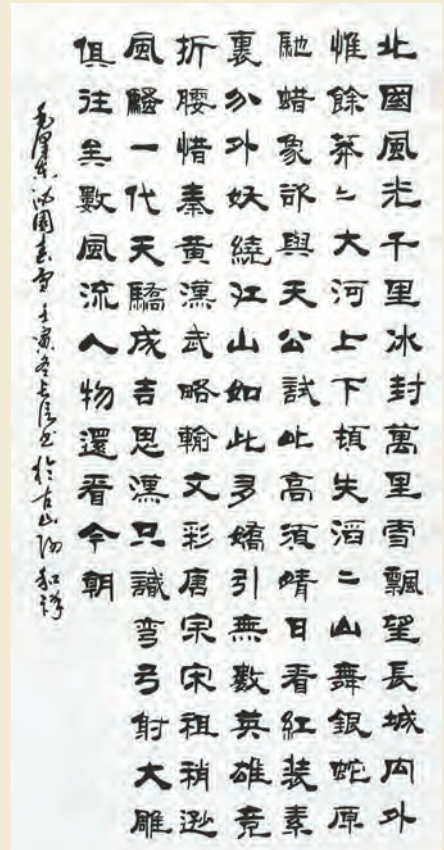 北國風光千里冰封萬里雪飄望長城内外
惟餘莽二大河上下頓失滔二山舞銀蛇原
馳蜡象欲與天公試比高須晴日看紅装素
裏分外妖繞江山如此多嬌引無數英雄竞
折腰惜秦黄漢武略輸文彩唐宗宋祖稍遜
風騷一代天驕成吉思漢只識弯弓射大雕
俱往矣數風流人物還看今朝
毛澤東沁園春雪壬寅冬書於古山陽和祥